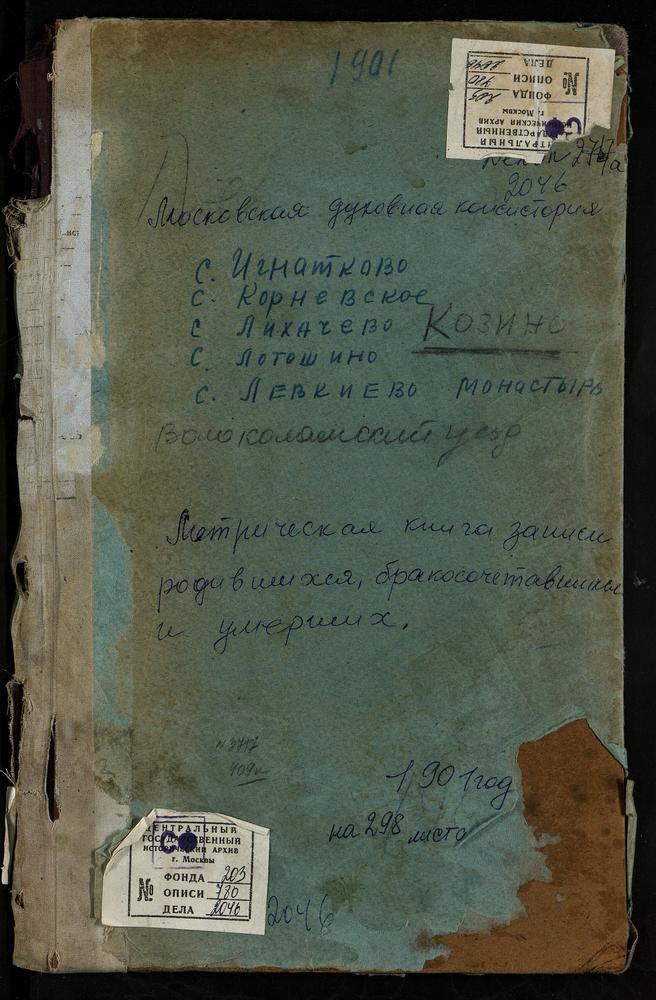 1901
ЦЕНТРАЛЬНЫЙ
ГОСУДАРСТВЕННЫЙ
ИСТОРИЧЕСКИЙ АРХИВ
г. Москвы
№
ФОНДА 203
ОПИСИ 780
ДЕЛА 2046
2046
Московская духовная консистория
с. Игнатково
с. Корневское
с Лихачево
Козино
с. Лотошино
с. Левкиево монастырь
Волоколамский уезд
Метрическая книга записи
родившихся, бракосочетавшихся
и умерших.
N 3717
409л
1901год
на 298 листа
ЦЕНТРАЛЬНЫЙ
ГОСУДАРСТВЕННЫЙ
ИСТОРИЧЕСКИЙ АРХИВ
г. Москвы
№
ФОНДА 203
ОПИСИ 780
ДЕЛА 2046
2046